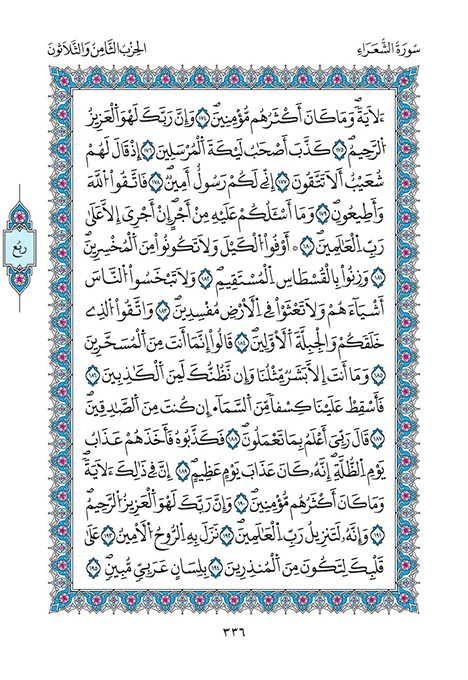 سُورَةُ الشُّعَرَاءِ
الحِزْبُ الثَّامِنُ وَالثَّلَاثُونَ
ءَلَايَةٗۖ وَمَا كَانَ أَكْثَرُهُم مُّؤْمِنِينَۖ ١٧٤ وَإِنَّ رَبَّكَ لَهُوَ اَ۬لْعَزِيزُ
اُ۬لرَّحِيمُۖ ١٧٥ كَذَّبَ أَصْحَٰبُ لَيْكَةَ اَ۬لْمُرْسَلِينَ ١٧٦ إِذْ قَالَ لَهُمْ
شُعَيْبٌ أَلَا تَتَّقُونَۖ ١٧٧ إِنِّے لَكُمْ رَسُولٌ أَمِينٞۖ ١٧٨ فَاتَّقُواْ اُ۬للَّهَ
وَأَطِيعُونِۖ ١٧٩ وَمَا أَسْـَٔلُكُمْ عَلَيْهِ مِنْ أَجْرٍۖ اِنْ أَجْرِيَ إِلَّا عَلَىٰ
رَبِّ اِ۬لْعَٰلَمِينَۖ ١٨٠ أَوْفُواْ اُ۬لْكَيْلَ وَلَا تَكُونُواْ مِنَ اَ۬لْمُخْسِرِينَۖ
١٨١ وَزِنُواْ بِالْقُسْطَاسِ اِ۬لْمُسْتَقِيمِۖ ١٨٢ وَلَا تَبْخَسُواْ اُ۬لنَّاسَ
أَشْيَآءَهُمْ وَلَا تَعْثَوْاْ فِے اِ۬لْأَرْضِ مُفْسِدِينَۖ ١٨٣ وَاتَّقُواْ اُ۬لذِے
خَلَقَكُمْ وَالْجِبِلَّةَ اَ۬لْأَوَّلِينَۖ ١٨٤ قَالُواْ إِنَّمَا أَنتَ مِنَ اَ۬لْمُسَحَّرِينَ
١٨٥ وَمَا أَنتَ إِلَّا بَشَرٞ مِّثْلُنَا وَإِن نَّظُنُّكَ لَمِنَ اَ۬لْكَٰذِبِينَۖ ١٨٦
فَأَسْقِطْ عَلَيْنَا كِسْفاٗ مِّنَ اَ۬لسَّمَآءِ اِن كُنتَ مِنَ اَ۬لصَّٰدِقِينَۖ
١٨٧ قَالَ رَبِّيَ أَعْلَمُ بِمَا تَعْمَلُونَۖ ١٨٨ فَكَذَّبُوهُ فَأَخَذَهُمْ عَذَابُ
يَوْمِ اِ۬لظُّلَّةِۖ إِنَّهُۥ كَانَ عَذَابَ يَوْمٍ عَظِيمٍۖ ١٨٩ اِنَّ فِے ذَٰلِكَ ءَلَايَةٗۖ
وَمَا كَانَ أَكْثَرُهُم مُّؤْمِنِينَۖ ١٩٠ وَإِنَّ رَبَّكَ لَهُوَ اَ۬لْعَزِيزُ اُ۬لرَّحِيمُۖ
١٩١ وَإِنَّهُۥ لَتَنزِيلُ رَبِّ اِ۬لْعَٰلَمِينَۖ ١٩٢ نَزَلَ بِهِ اِ۬لرُّوحُ اُ۬لْأَمِينُ ١٩٣ عَلَىٰ
قَلْبِكَ لِتَكُونَ مِنَ اَ۬لْمُنذِرِينَ ١٩٤ بِلِسَانٍ عَرَبِيّٖ مُّبِينٖۖ ١٩٥
ربع
٣٣٦